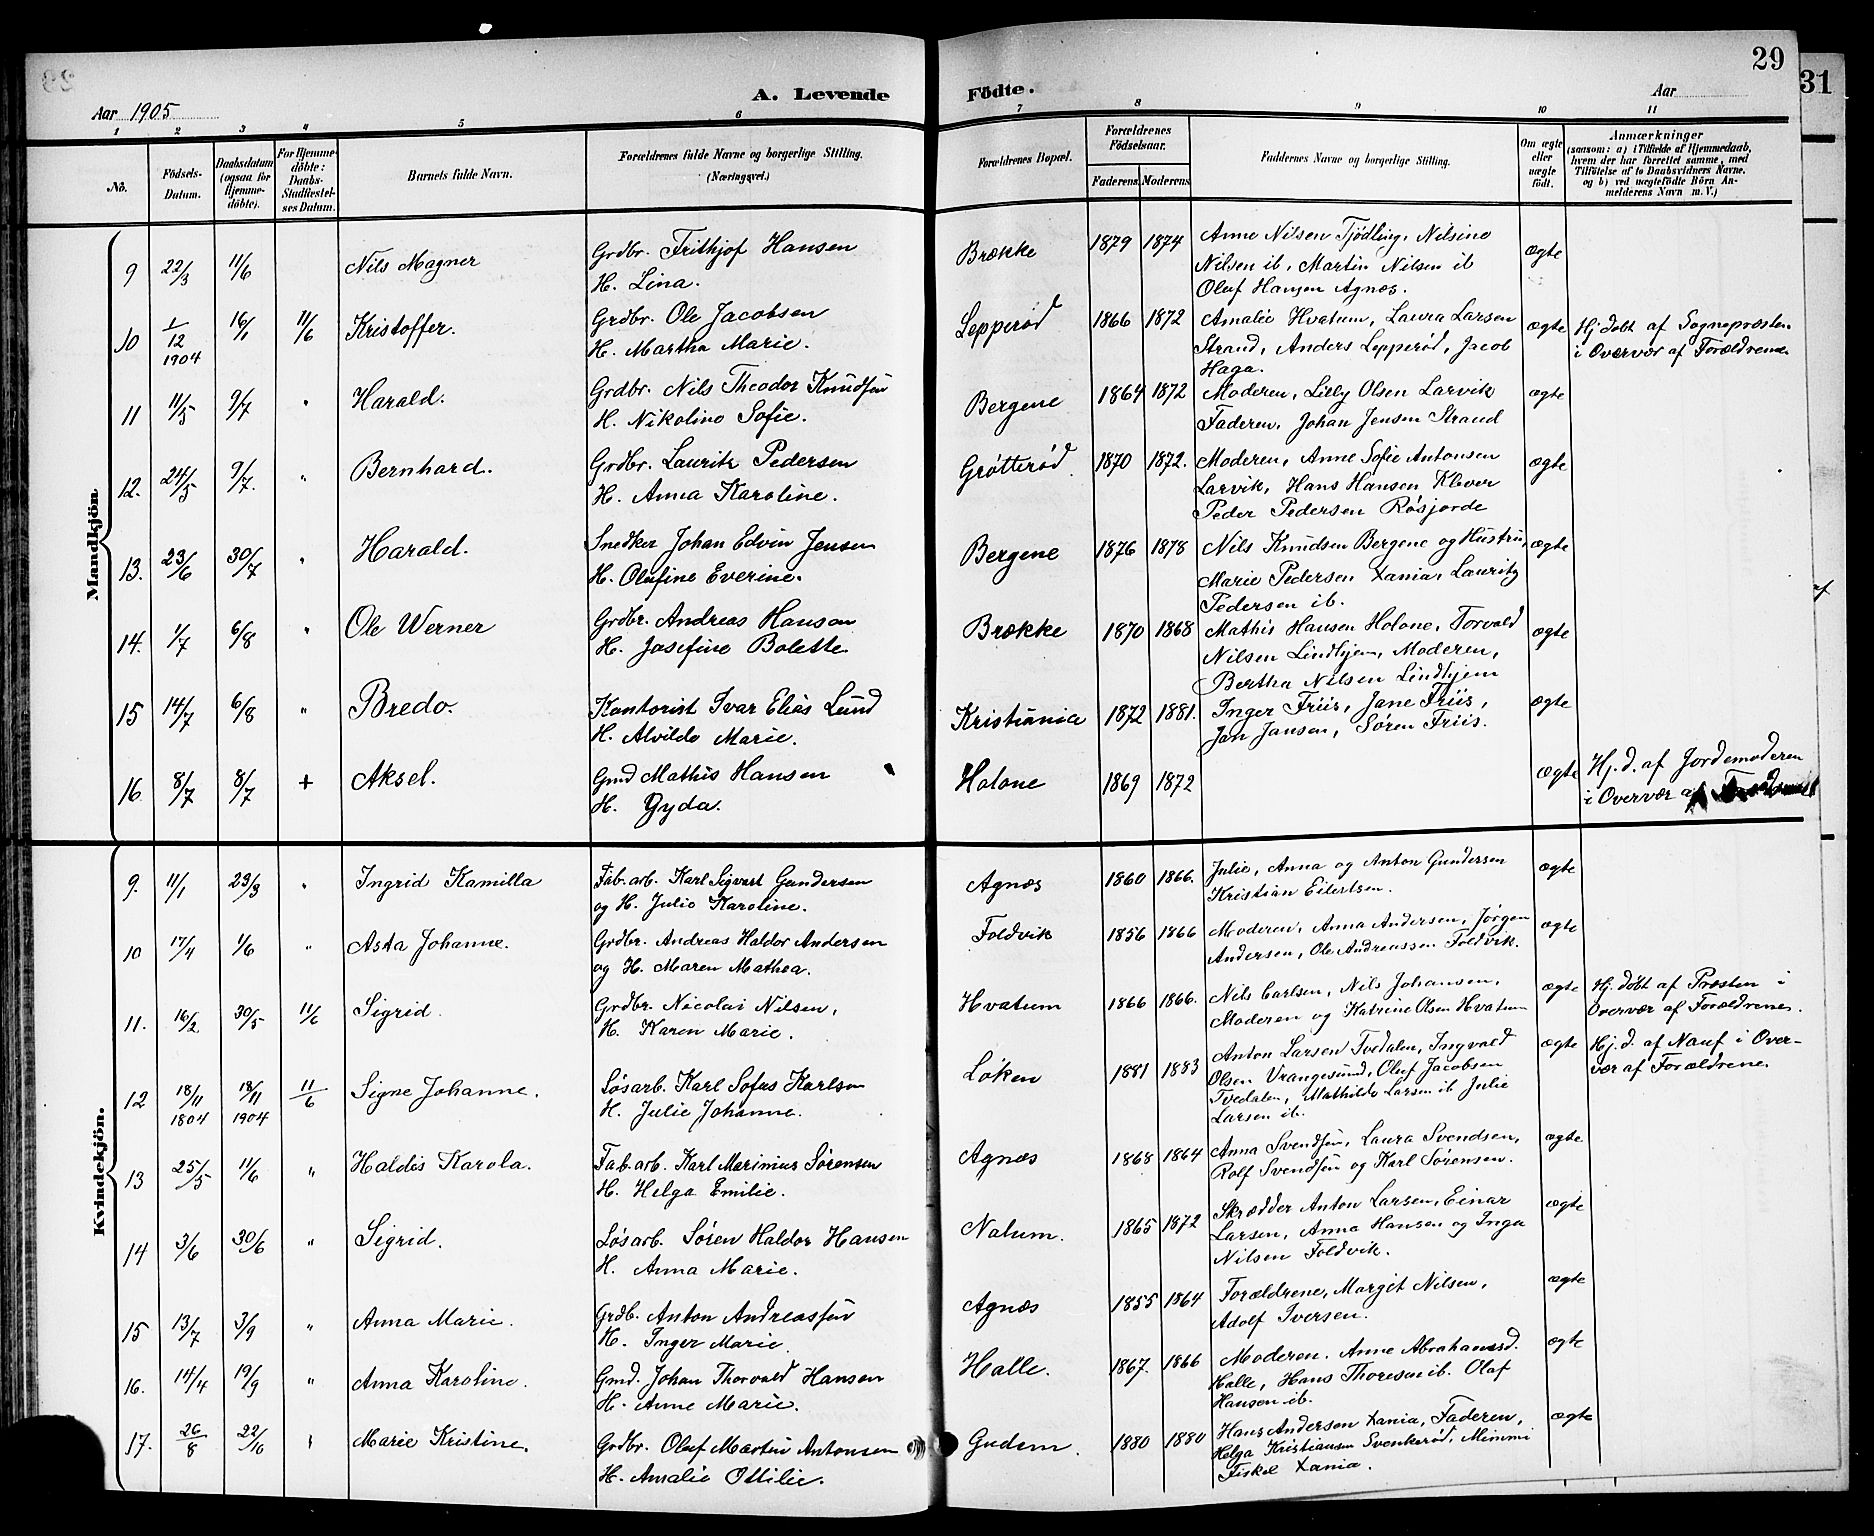 29
31
Aar 1905
A. Levende Födte.
Aar
1 2 3 4 5 6 7 8 9 10 11
No.
Födsels-Datum.
Daabsdatum (ogsaa for Hjemme-döbte).
For Hjemme-döbte: Daabs-Stadfæstel-ses Datum.
Barnets fulde Navn.
Forældrenes fulde Navne og borgerlige Stilling. (Næringsvei.)
Forældrenes Bopæl.
Forældrenes Födselsaar.
Faderens. Moderens.
Faddernes Navne og borgerlige Stilling.
Om ægte eller uægte födt.
Anmærkninger
(saasom: a) i Tilfælde af Hjemmedaab, hvem der har forrettet samme, med Tilföielse af to Daabsvidners Navne, og b) ved uægtefödte Börn An-melderens Navn m. V.)
Mandkjön
9 22/3 11/6 Nils Magner Grdbr. Frithjof Hansen H. Lina. Brække 1879 1874 Anne Nilsen Tjödling, Nilsine Nilsen ib, Martin Nilsen ib Oluf Hansen Agnæs. ægte
10 1/12 1904 16/1 11/6 Kristoffer. Grdbr. Ole Jacobsen H. Martha Marie. Lepperød 1866 1872 Amalie Hvatum, Laura Larsen Strand, Anders Lepperød, Jacob Haga. ægte Hj. döbt af Sognepræsten i Overvær af Forældrene
11 11/5 9/7 " Harald. Grdbr. Nils Theodor Knudsen H. Nikoline Sofie. Bergene 1864 1872 Moderen, Lilly Olsen Larvik Faderen, Johan Jensen Strand ægte
12. 24/5 9/7. " Bernhard. Grdbr. Lauritz Pedersen H. Anna Karoline. Grøtterød 1870 1872. Moderen, Anne Sofie Antonsen Larvik, Hans Hansen Klever Peder Pedersen Røsjorde ægte
13. 23/6 30/7 " Harald. Snedker Johan Edvin Jensen H. Olufine Everine. Bergene 1876 1878 Nils Knudsen Bergene og Hustru, Marie Pedersen Xania, Lauritz Pedersen ib. ægte
14. 1/7 6/8 " Ole Werner Grdbr. Andreas Hansen H. Josefine Bolette Brække 1870 1868 Mathis Hansen Holone, Torvald Nilsen Lindhjem, Moderen, Bertha Nilsen Lindhjem ægte
15 14/7 6/8 " Bredo. Kontorist Ivar Elias Lund H. Alvilde Marie. Kristiania 1872 1881. Inger Friis, Jane Friis, Jan Jansen, Søren Friis. ægte
16. 8/7 8/7 + Aksel. Gmd Mathis Hansen H. Gyda. Holone 1869 1872 ægte Hj. d. af Jordemoderen i Overvær af Forældrene
Kvindekjön.
9. 11/1 23/3 " Ingrid Kamilla Fab. arb. Karl Sigvart Gundersen og H. Julie Karoline. Agnæs 1860 1866. Julie, Anna og Anton Gundersen Kristian Eilertsen. ægte
10 17/4 1/6 " Asta Johanne. Grdbr. Andreas Haldor Andersen og H. Maren Mathea. Foldvik 1856 1866 Moderen, Anna Andersen, Jørgen Andersen, Ole Andreassen Foldvik. ægte
11. 16/2 30/5 11/6 Sigrid. Grdbr. Nicolai Nilsen, H. Karen Marie. Hvatum 1866 1866. Nils Carlsen, Nils Johansen, Moderen og Katrine Olsen Hvatum ægte Hj. döbt af Præsten i Overvær af Forældrene.
12 18/11 1804 18/11 1904 11/6 Signe Johanne. Løsarb. Karl Sofus Karlsen H. Julie Johanne. Løken 1881 1883 Anton Larsen Tvedalen, Ingvald Olsen Vrangesund, Oluf Jacobsen Tvedalen, Mathilde Larsen ib Julie Larsen ib. ægte Hj. d. af Nauf i Over-vær af Forældrene.
13 25/5 11/6 " Haldis Karola. Fab. arb. Karl Marinius Sørensen H. Helga Emilie. Agnæs 1868 1864 Anna Svendsen, Laura Svendsen, Rolf Svendsen og Karl Sørensen. ægte
14 3/6 30/6 " Sigrid. Løsarb. Søren Haldor Hansen H. Anna Marie. Nalum. 1865 1872 Skrædder Anton Larsen, Einar Larsen, Anna Hansen og Inga Nilsen Foldvik. ægte
15 13/7 3/9 " Anna Marie. Grdb. Anton Andreassen H. Inger Marie. Agnæs 1855 1864 Forældrene, Margit Nilsen, Adolf Iversen. ægte
16. 14/4 19/9 " Anna Karoline. Gmd. Johan Thorvald Hansen H. Anne Marie. Halle. 1867. 1866 Moderen. Anne Abrahamsd. Halle, Hans Thoresen ib. Olaf Hansen ib. ægte
17. 26/8 22/10 " Marie Kristine. Grdbr. Oluf Martin Antonsen H. Amalie Ottilie. Gudem. 1880 1880 Hans Anderson Xania, Faderen, Helga Kristiansen Svenkerød, Mimmi Fiskel Xania. ægte